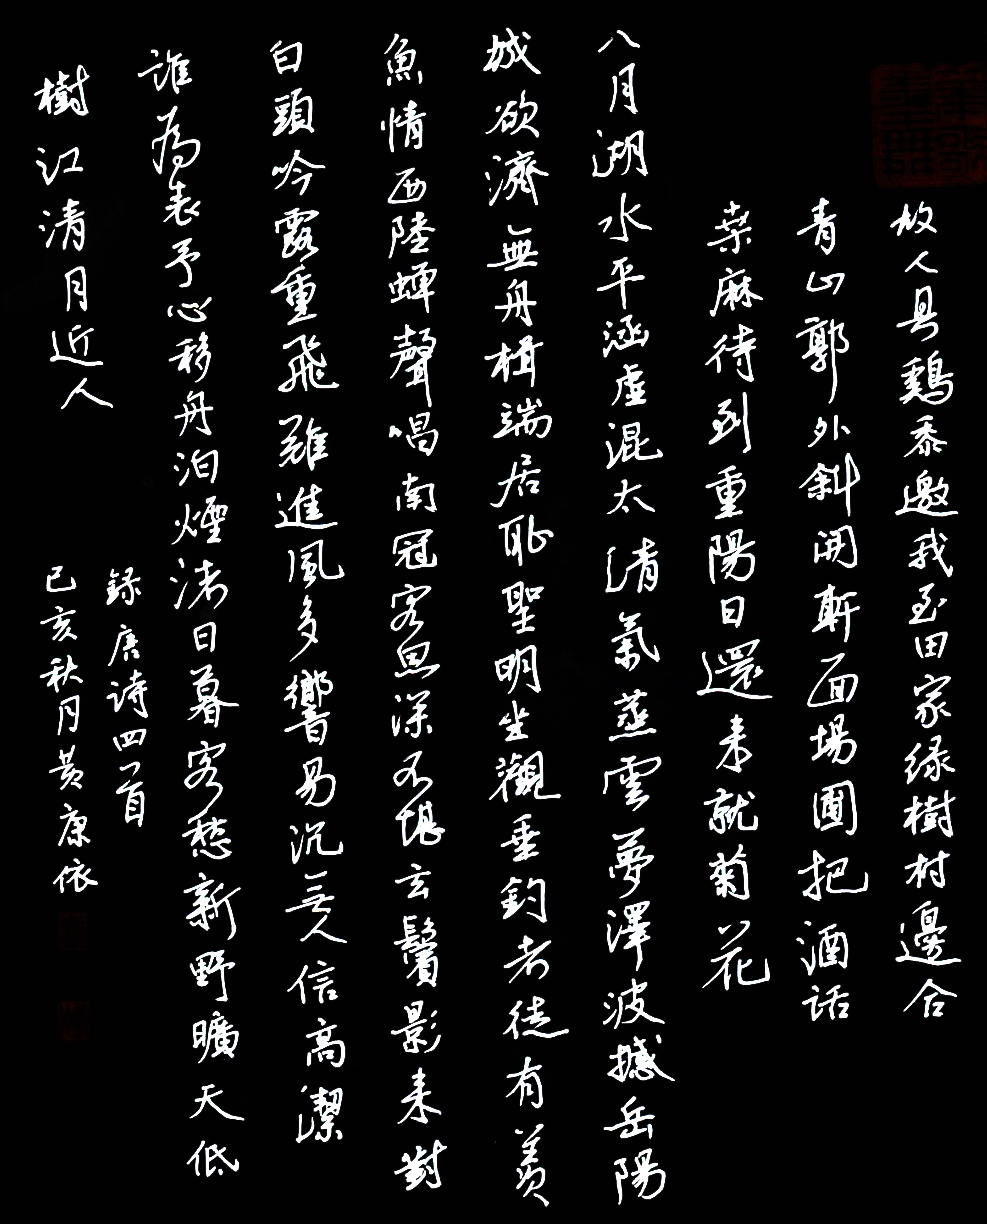 故人具鷄黍邀我至田家綠樹村邊合
青山郭外斜開軒面場圃把酒話
桑麻待到重陽日還来就菊花
八月湖水平涵虛混太清氣蒸雲夢澤波撼岳陽
城欲濟無舟楫端居恥聖明坐觀垂釣者徒有羨
魚情西陸蟬聲唱南冠客思深不堪玄鬢影来對
白頭吟露重飛難進風多響易沉無人信高潔
誰為表予心移舟泊煙渚日暮客愁新野曠天低
樹江清月近人
錄唐诗四首
己亥秋月黄康依